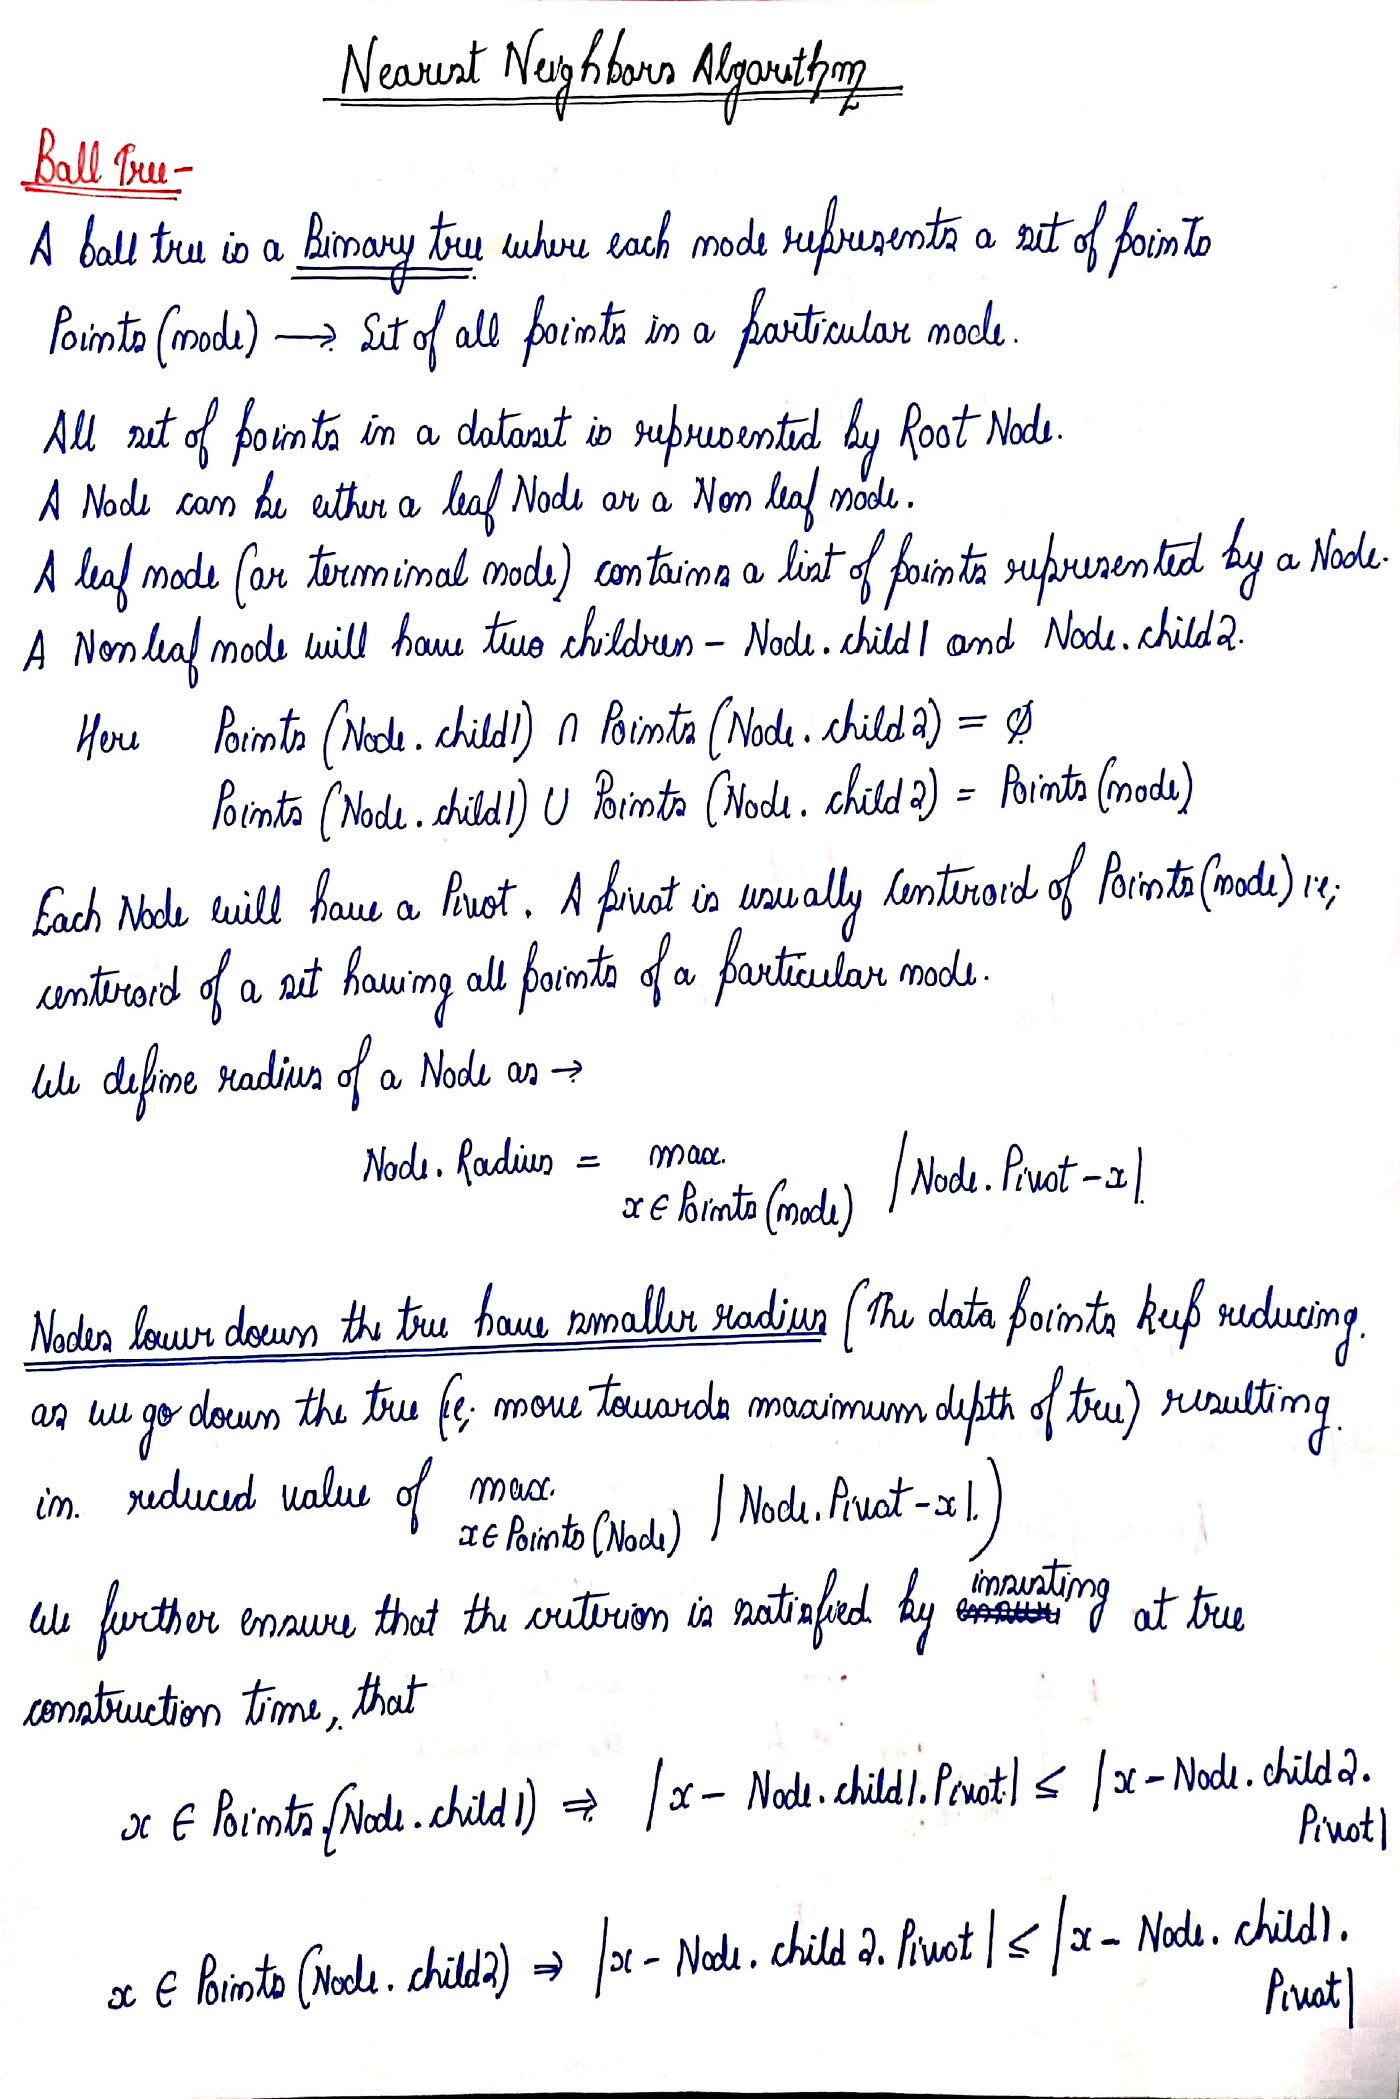 Nearest Neighbors Algorithm
Ball Tree-
A ball tree is a Binary tree where each node represents a set of points
Points (node) → Set of all points in a particular node.
All set of points in a dataset is represented by Root Node.
A Node can be either a leaf Node or a Non leaf node.
A leaf node (or terminal node) contains a list of points represented by a Node.
A Non leaf node will have two children - Node.child1 and Node.child2.
Here Points (Node.child1) ∩ Points (Node.child2) = ∅
Points (Node.child1) ∪ Points (Node.child2) = Points (node)
Each Node will have a Pivot. A pivot is usually Centeroid of Points (node) ie;
centeroid of a set having all points of a particular node.
We define radius of a Node as →
Node.Radius = max. |Node.Pivot - x|
x ∈ Points (node)
Nodes lower down the tree have smaller radius (The data points keep reducing.
as we go down the tree (ie; move towards maximum depth of tree) resulting.
in. reduced value of max. |Node.Pivot - x|.)
x ∈ Points (Node)
We further ensure that the criterion is satisfied by insisting at tree
construction time, that
x ∈ Points (Node.child1) ⇒ |x - Node.child1.Pivot| ≤ |x - Node.child2.
Pivot|
x ∈ Points (Node.child2) ⇒ |x - Node.child2.Pivot| ≤ |x - Node.child1.
Pivot|